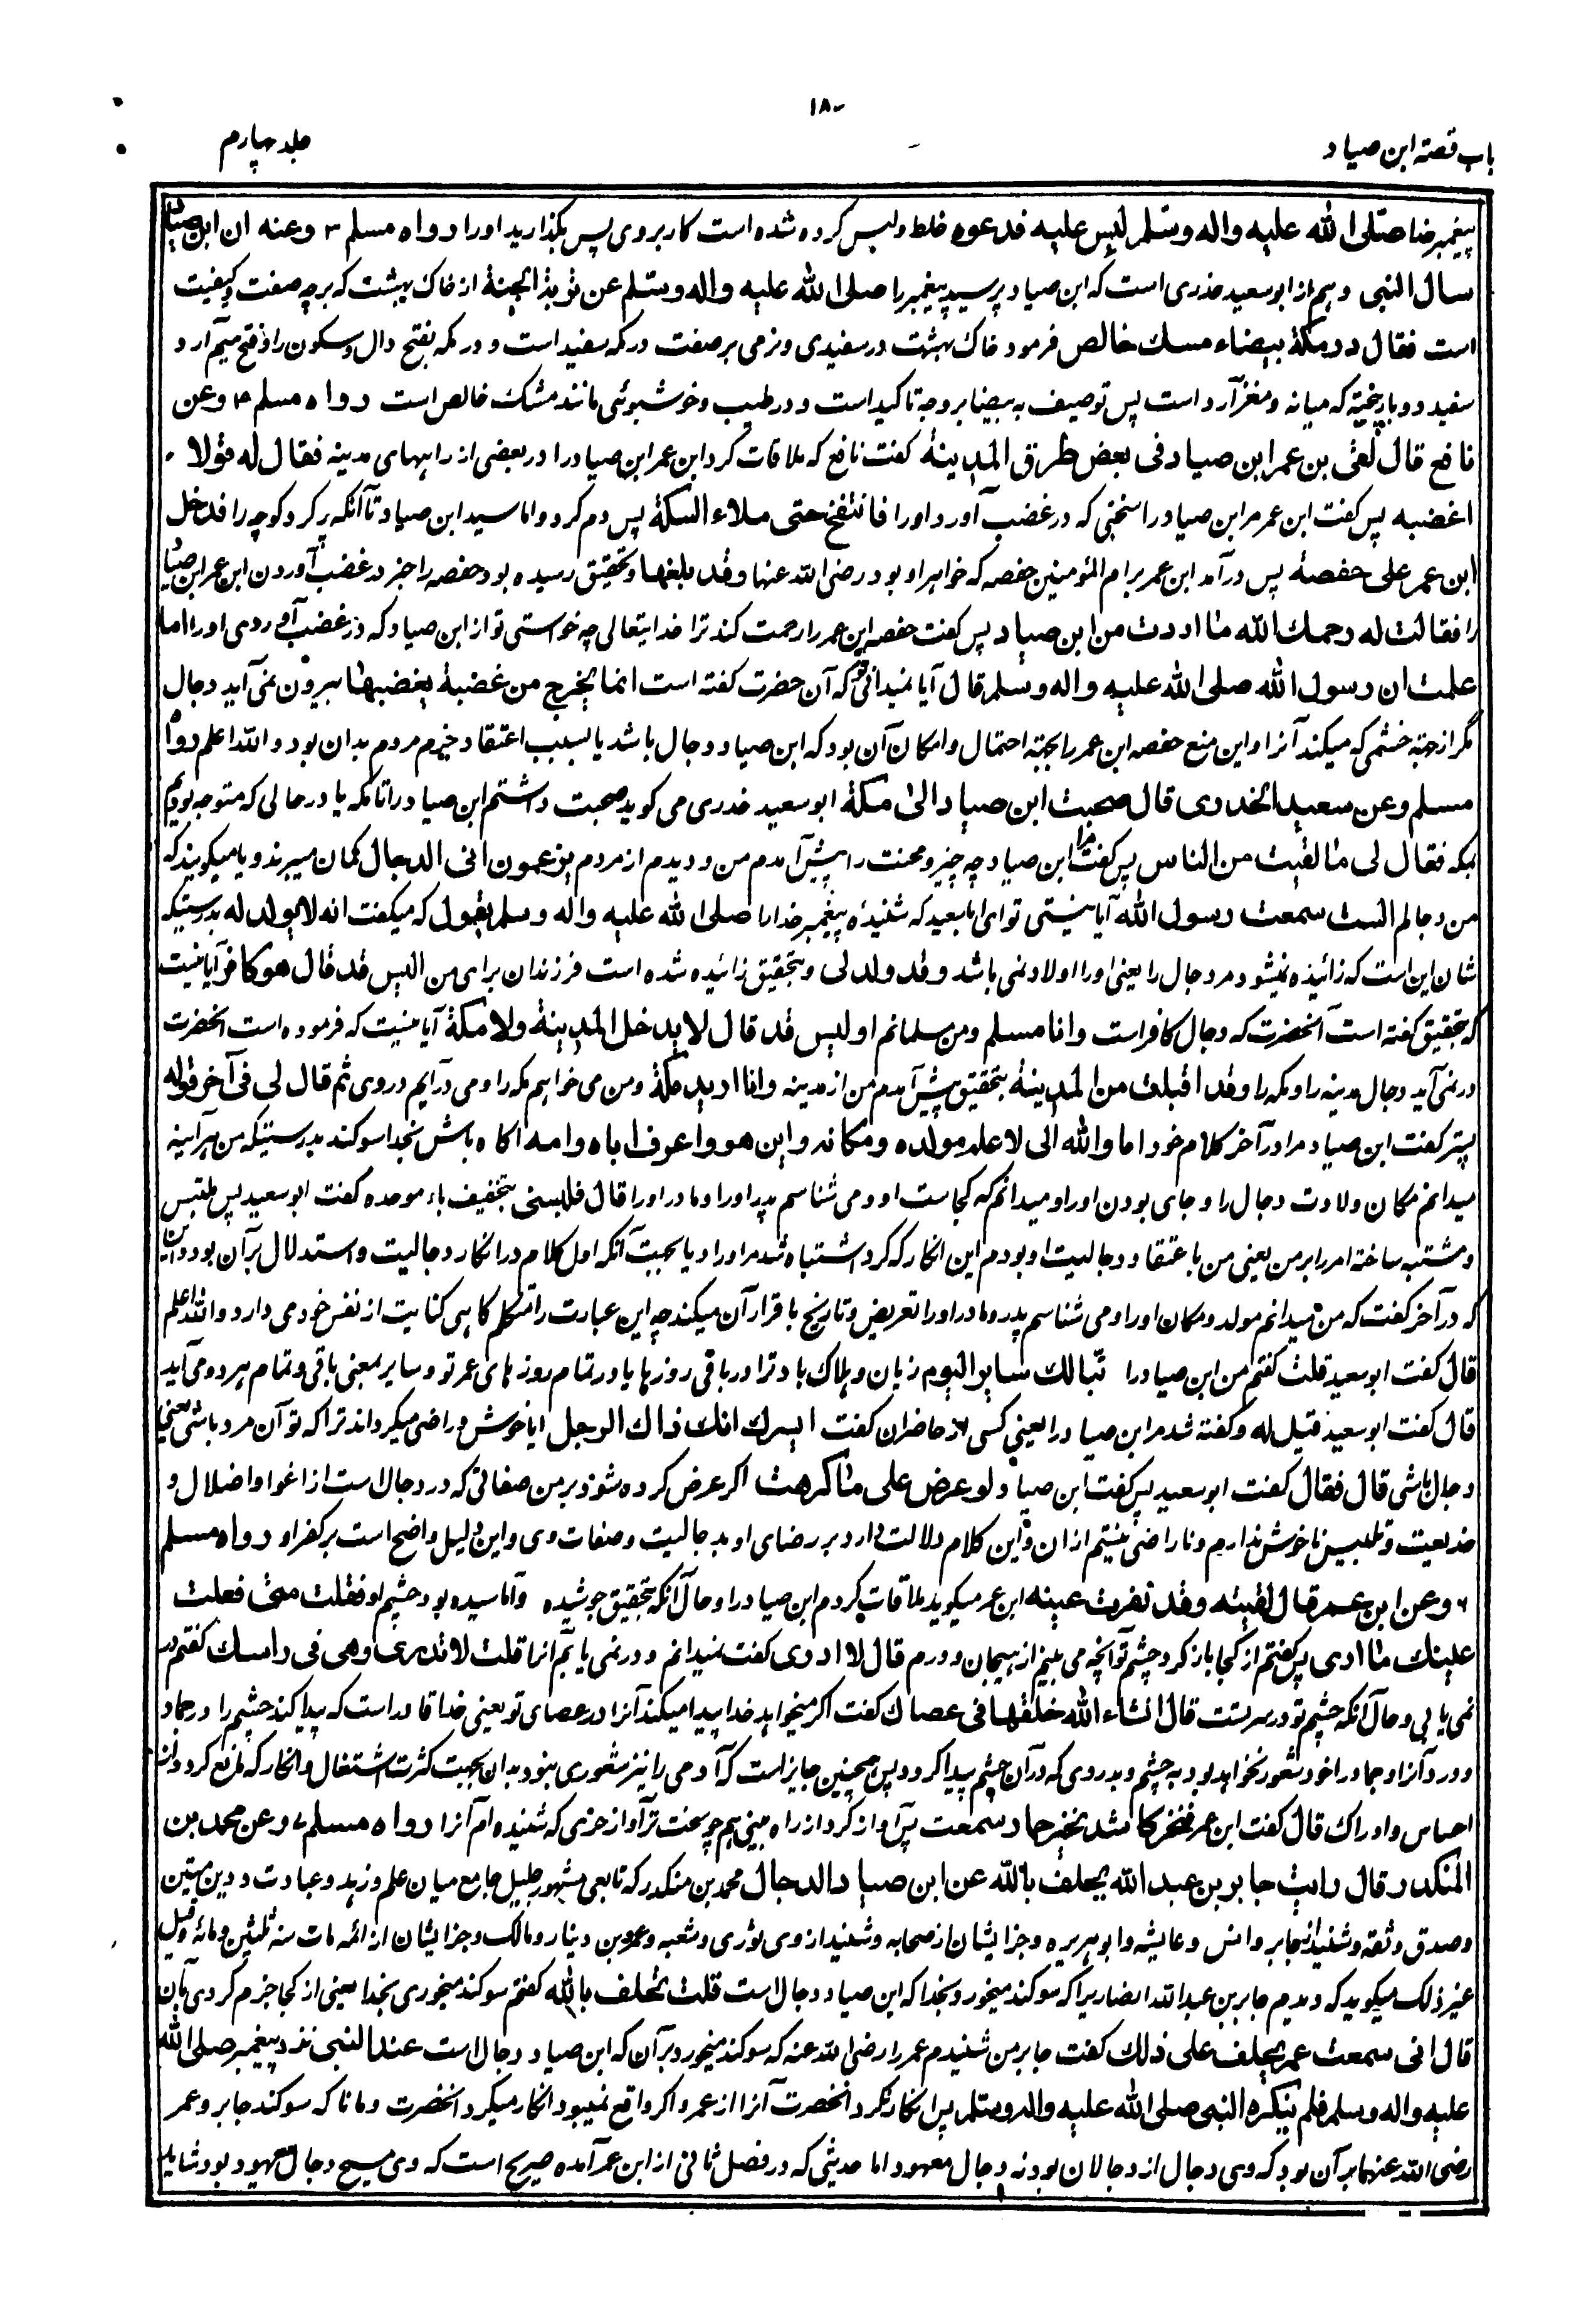 ۱۸۰
باب قصته ابن صیاد
جلد چهارم
پیغمبر خدا صلی الله علیه واله وسلم لبس علیه فدعوه خلط ولبس کرده شده است کار بروی پس بگذارید اورا رواه مسلم ۳ وعنه ان ابن صیاد
سال النبی وهم از ابو سعید خدری است که ابن صیاد پرسید پیغمبر را صلی الله علیه واله وسلم عن تربة الجنة از خاک بهشت که بر چه صفت وکیفیت
است فقال درمکة بیضاء مسک خالص فرمود خاک بهشت در سفیدی ونرمی بر صفت درمکه سفید است و درمکه بفتح دال وسکون را وفتح میم آرد
سفید دو بار پخته که میانه ومغز آرد است پس توصیف به بیضا بر وجه تاکید است و در طیب وخوشبوئی مانند مشک خالص است رواه مسلم ۴ وعن
نافع قال لقی بن عمر ابن صیاد فی بعض طرق المدینة کفت نافع که ملاقات کرد ابن عمر ابن صیاد را در بعضی از راههای مدینه فقال له قولا
اغضبه پس کفت ابن عمر مر ابن صیاد را سخنی که در غضب آورد اورا فانتفخ حتی ملاء السکة پس دم کرد واماسید ابن صیاد تا آنکه پر کرد کوچه را فدخل
ابن عمر علی حفصة پس در آمد ابن عمر بر ام المؤمنین حفصه که خواهر او بود رضی الله عنها وقد بلغها وتحقیق رسیده بود حفصه را خبر در غضب آوردن ابن عمر ابن صیاد
را فقالت له رحمک الله ما اردت من ابن صیاد پس کفت حفصه ابن عمر را رحمت کند ترا خدایتعالی چه خواستی تو از ابن صیاد که در غضب آوردی اورا اما
علمت ان رسول الله صلی الله علیه واله وسلم قال آیا نمیدانی تو که آن حضرت کفته است انما یخرج من غضبة یغضبها بیرون نمی آید دجال
مکر از جهته خشمی که میکند آنرا واین منع حفصه ابن عمر را بجهته احتمال وامکان آن بود که ابن صیاد دجال باشد یا بسبب اعتقاد وجزم مردم بدان بود والله اعلم رواه
مسلم وعن سعید الخدری قال صحبت ابن صیاد الی مکة ابو سعید خدری می کوید صحبت داشتم ابن صیاد را تا مکه یا در حالی که متوجه بودیم
بمکه فقال لی ما لقیت من الناس پس کفت مرا ابن صیاد چه چیز ومحنت را پیش آمدم من ودیدم از مردم یزعمون انی الدجال کمان میبرند ویا میکویند که
من دجالم الست سمعت رسول الله آیا نیستی تو ای ابا سعید که شنیده پیغمبر خدا را صلی الله علیه واله وسلم یقول که میکفت انه لا یولد له بدرستیکه
شان این است که زائیده نمیشود مر دجال را یعنی اورا اولاد نمی باشد وقد ولد لی وبتحقیق زائیده شده است فرزندان برای من الیس قد قال هو کافر آیا نیست
که بتحقیق کفته است آنحضرت که دجال کافر است وانا مسلم ومن مسلمانم اولیس قد قال لا یدخل المدینة ولا مکة آیا نیست که فرموده است آنحضرت
در نمی آید دجال مدینه را ومکه را وقد اقبلت من المدینة بتحقیق پیش آمدم من از مدینه وانا ارید مکة ومن می خواهم مکه را ومی در آیم در وی ثم قال لی فی آخر قوله
پستر کفت ابن صیاد مرا در آخر کلام خود اما والله انی لاعلم مولده ومکانه واین هو واعرف اباه وامه آکاه باش بخدا سوکند بدرستیکه من هر آینه
میدانم مکان ولادت دجال را وجای بودن اورا ومیدانم که کجاست او ومی شناسم پدر اورا ومادر اورا قال فلبسنی بتخفیف باء موحده کفت ابو سعید پس ملتبس
ومشتبه ساخت امر را بر من یعنی من با عتقاد دجالیت او بودم این انکار که کرد اشتباه شد مرا ورا ویا بجهت آنکه اول کلام در انکار دجالیت واستدلال بر آن بود واین
که در آخر کفت که من میدانم مولد ومکان اورا ومی شناسم پدر ومادر اورا تعریض وتلویح با قرار آن میکند چه این عبارت را متکلم کاهی کنایت از نفس خود می دارد والله اعلم
قال کفت ابو سعید قلت کفتم من ابن صیاد را تبا لک سایر الیوم زیان وهلاک باد ترا در باقی روزها یا در تمام روزهای عمر تو وسایر بمعنی باقی وتمام هر دو می آید
قال کفت ابو سعید فقیل له وکفته شد مر ابن صیاد را یعنی کسی از حاضران کفت ایسرک انک ذاک الرجل آیا خوش وراضی میکرداند ترا که تو آن مرد باشی یعنی
دجال باشی قال فقال کفت ابو سعید پس کفت ابن صیاد لو عرض علی ما کرهت اکر عرض کرده شود بر من صفاتی که در دجال است از اغوا واضلال و
خدیعت وتلبیس ناخوش ندارم ونا راضی نیستم از آن واین کلام دلالت دارد بر رضای او بدجالیت وصفات وی واین دلیل واضح است بر کفر او رواه مسلم
۶ وعن ابن عمر قال لقیته وقد نفرت عینه ابن عمر میکوید ملاقات کردم ابن صیاد را وحال آنکه بتحقیق جوشیده وآماسیده بود چشم او فقلت متی فعلت
عینک ما اری پس کفتم از کی باز کرد چشم تو آنچه می بینم از هیجان وورم قال لا ادری کفت نمیدانم ودر نمی یابم آنرا قلت لا تدری وهی فی راسک کفتم در
نمی یابی وحال آنکه چشم تو در سر تست قال ان شاء الله خلقها فی عصاک کفت اکر میخواهد خدا پیدا میکند آنرا در عصای تو یعنی خدا قادر است که پیدا کند چشم را در جماد
ودرد آنرا وجماد را خود شعور نخواهد بود به چشم وبدردی که در آن چشم پیدا کرد وپس همچنین جایز است که آدمی را نیز شعوری نبود بدان بجهت کثرت اشتغال وافکار که مانع کردد از
احساس وادراک قال کفت ابن عمر فنخر کاشد نخیر حمار سمعت پس آواز کرد از راه بینی همچو سخت تر آواز خری که شنیده ام آنرا رواه مسلم ۷ وعن محمد بن
المنکدر قال رایت جابر بن عبد الله یحلف بالله عن ابن صیاد الدجال محمد بن منکدر که تابعی مشهور جلیل جامع میان علم وزهد وعبادت ودین متین
وصدق وثقه وشنید از جابر وانس وعایشه وابو هریره وجز ایشان از صحابه وشنید از وی ثوری وشعبه وعمرو بن دینار ومالک وجز ایشان از ائمه مات سنه ثلثین ومائة وقیل
غیر ذلک میکوید که دیدم جابر بن عبد الله انصاری را که سوکند میخورد بخدا که ابن صیاد دجال است قلت تحلف بالله کفتم سوکند میخوری بخدا یعنی از کجا جزم کردی بآن
قال انی سمعت عمر یحلف علی ذلک کفت جابر من شنیدم عمر را رضی الله عنه که سوکند میخورد بر آن که ابن صیاد دجال است عند النبی نزد پیغمبر صلی الله
علیه واله وسلم فلم ینکره النبی صلی الله علیه واله وسلم پس انکار نکرد آنحضرت آنرا از عمر واکر واقع نمیبود انکار میکرد آنحضرت ومانا که سوکند جابر وعمر
رضی الله عنهما بر آن بود که وی دجال از دجالان بود نه دجال معهود اما حدیثی که در فصل ثانی از ابن عمر آمده صریح است که وی مسیح دجال معهود بود شاید